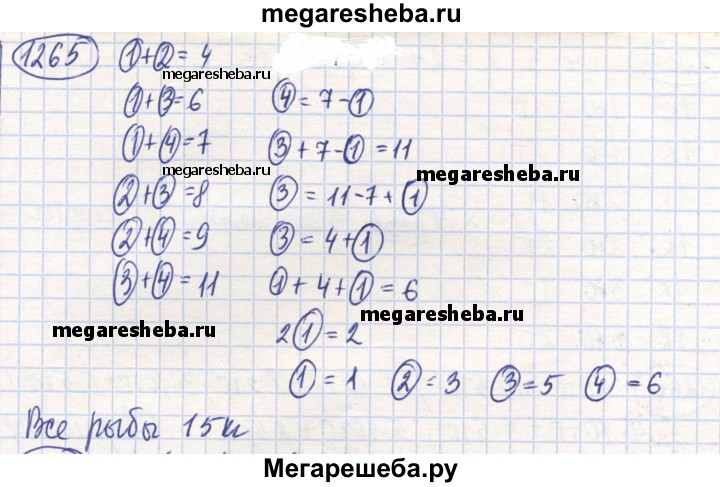 megaresheba.ru
1265 ①+②=4
megaresheba.ru
①+③=6 ④=7-①
①+④=7 ③+7-①=11
megaresheba.ru megaresheba.ru
②+③=8 ③=11-7+①
②+④=9 ③=4+①
③+④=11 ①+4+①=6
megaresheba.ru megaresheba.ru
2①=2
①=1 ②=3 ③=5 ④=6
Все рыбы 15к
Мегарешеба.ру